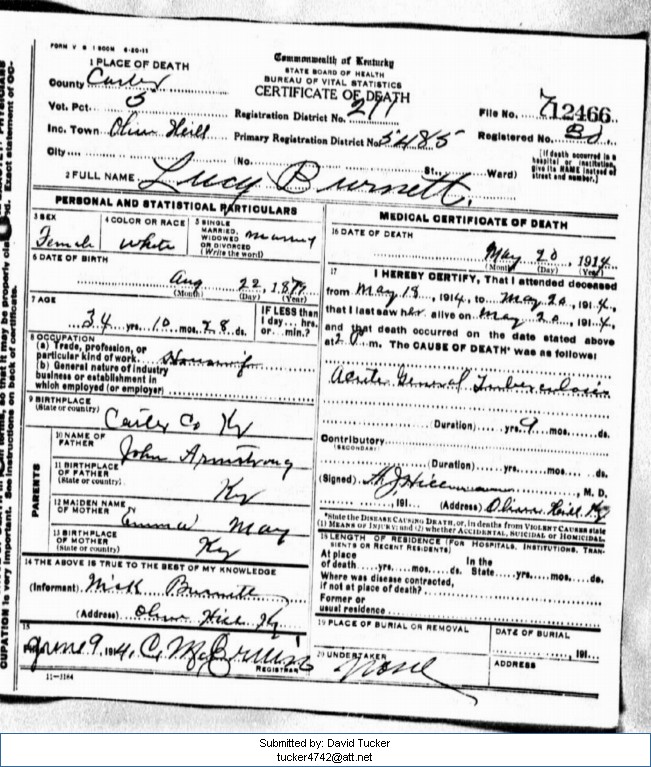 FORM V S 1 500M 6-20-11
Commonwealth of Kentucky
STATE BOARD OF HEALTH
BUREAU OF VITAL STATISTICS
CERTIFICATE OF DEATH
1 PLACE OF DEATH
County Carter
Vot. Pct. 5
Registration District No. 211
File No. 12466
Inc. Town Olive Hill
Primary Registration District No. 5485
Registered No.
City
(No. St., Ward)
[If death occurred in a hospital or institution, give its NAME instead of street and number.]
2 FULL NAME Lucy Burnett.
PERSONAL AND STATISTICAL PARTICULARS
3 SEX
Female
4 COLOR OR RACE
White
5 SINGLE MARRIED, WIDOWED OR DIVORCED (Write the word)
Married
6 DATE OF BIRTH
Aug 22, 1879
(Month) (Day) (Year)
7 AGE
34 yrs. 10 mos. 28 ds.
IF LESS than 1 day... hrs. or...min.?
8 OCCUPATION
(a) Trade, profession, or particular kind of work Housewife
(b) General nature of industry business or establishment in which employed (or employer)
9 BIRTHPLACE (State or country)
Carter Co Ky
PARENTS
10 NAME OF FATHER
John Armstrong
11 BIRTHPLACE OF FATHER (State or country)
Ky
12 MAIDEN NAME OF MOTHER
Emma May
13 BIRTHPLACE OF MOTHER (State or country)
Ky
14 THE ABOVE IS TRUE TO THE BEST OF MY KNOWLEDGE
(Informant) Mick Burnett
(Address) Olive Hill Ky
15
June 9, 1914, C. M.
REGISTRAR
11-3184
MEDICAL CERTIFICATE OF DEATH
16 DATE OF DEATH
May 20, 1914
(Month) (Day) (Year)
17 I HEREBY CERTIFY, That I attended deceased
from May 18, 1914, to May 20, 1914,
that I last saw her alive on May 20, 1914,
and that death occurred on the date stated above
at m. The CAUSE OF DEATH* was as follows:
Acute General Tuberculosis
(Duration) yrs. 9 mos. ds.
Contributory
(SECONDARY)
(Duration) yrs. mos. ds.
(Signed) M.D.
191 (Address) Olive Hill, Ky
*State the DISEASE CAUSING DEATH, or, in deaths from VIOLENT CAUSES state (1) MEANS OF INJURY; and (2) whether ACCIDENTAL, SUICIDAL or HOMICIDAL.
18 LENGTH OF RESIDENCE (FOR HOSPITALS, INSTITUTIONS, TRANSIENTS OR RECENT RESIDENTS)
At place of death yrs. mos. ds. In the State yrs. mos. ds.
Where was disease contracted, if not at place of death?
Former or usual residence
19 PLACE OF BURIAL OR REMOVAL
DATE OF BURIAL
191
20 UNDERTAKER
None
ADDRESS
Exact statement of OC-
CUPATION is very important. See instructions on back of certificate.
Submitted by: David Tucker
tucker4742@att.net